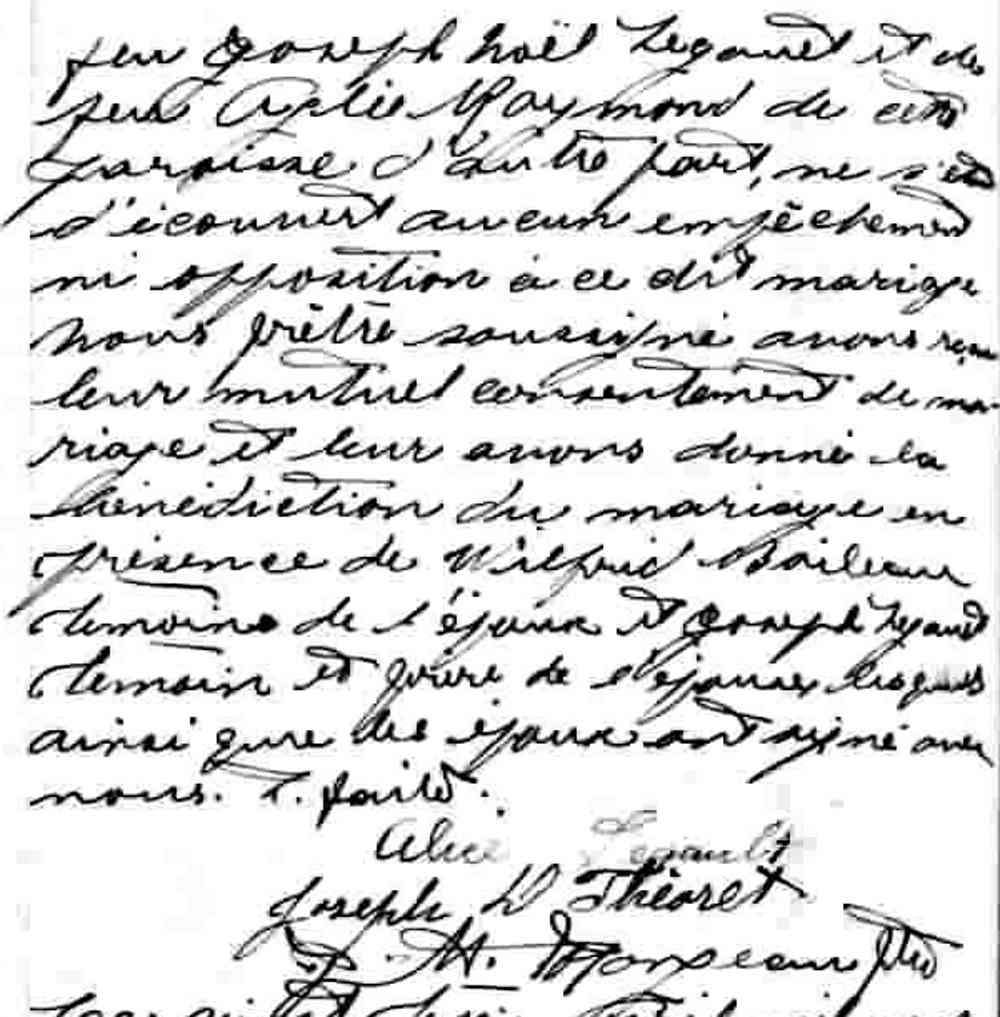 feu Joseph Noël Legault et de
feue Azélie Raymond de cette
paroisse d'autre part, ne s'étt
d'écouvert aucun empêchement
ni opposition à ce dit mariage
nous prêtre soussigné avons reçu
leur mutuel consentement de ma-
riage et leur avons donné la
bénédiction du mariage en
présence de Wilfrid Boileau
temoins de l'époux et Joseph Legault
temoin et frère de l'épouse lesquels
ainsi que les époux ont signé avec
nous. L. faite.
Alice Legault
Joseph D Théoret